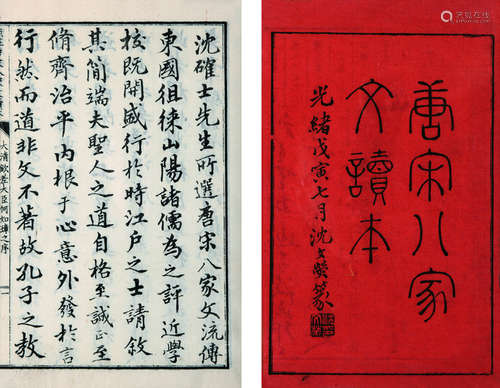 唐宋八家
文讀本
光緒戊寅七月沈文熒篆
沈確士先生所選唐宋八家文流傳
東國徂徠山陽諸儒為之評近學
校既開盛行於時江戶之士請敘
其簡端夫聖人之道自格至誠正至
脩齊治平内根于心意外發於言
行然而道非文不著故孔子之教
大清欽差大臣何如璋之序